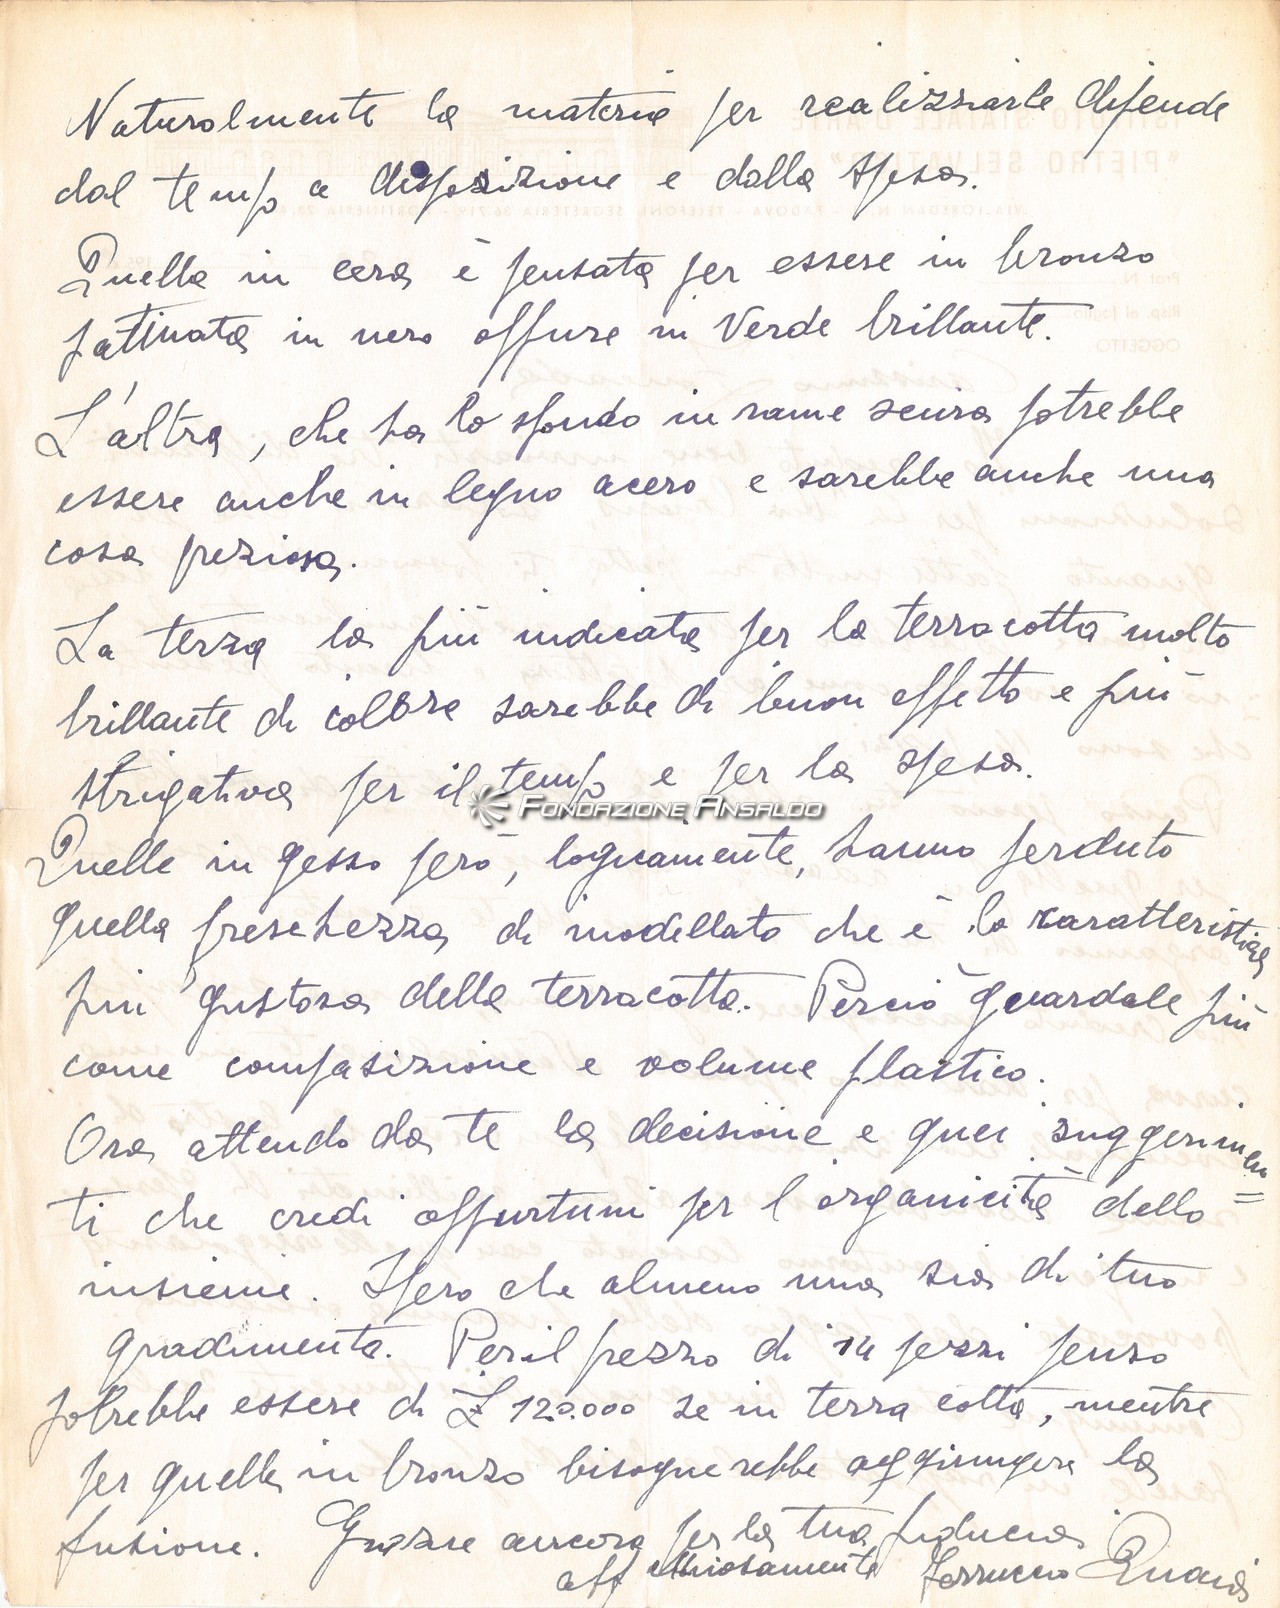 Naturalmente la materia per realizzarle dipende
dal tempo a disposizione e dalla spesa.
Quella in cera è pensata per essere in bronzo
patinata in nero oppure in verde brillante.
L'altra, che ha lo sfondo in rame senza potrebbe
essere anche in legno acero e sarebbe anche una
cosa preziosa.
La terza la più indicata per la terracotta molto
brillante di colore sarebbe di buon effetto e più
strigativa per il tempo e per la spesa.
FONDAZIONE ANSALDO
Quelle in gesso però, logicamente, hanno perduto
quella freschezza di modellato che è la caratteristica
più gustosa della terracotta. Perciò guardale più
come composizione e volume plastico.
Ora attendo da te la decisione e quei suggerimen=
ti che credi opportuni per l'organicità dello
insieme. Spero che almeno una sia di tuo
gradimento. Per il prezzo di pezzi penso
potrebbe essere di £ 120.000 se in terra cotta, mentre
per quella in bronzo bisognerebbe aggiungere la
fusione. Grazie ancora per la tua fiducia
aff ettuosamente Ferruccio